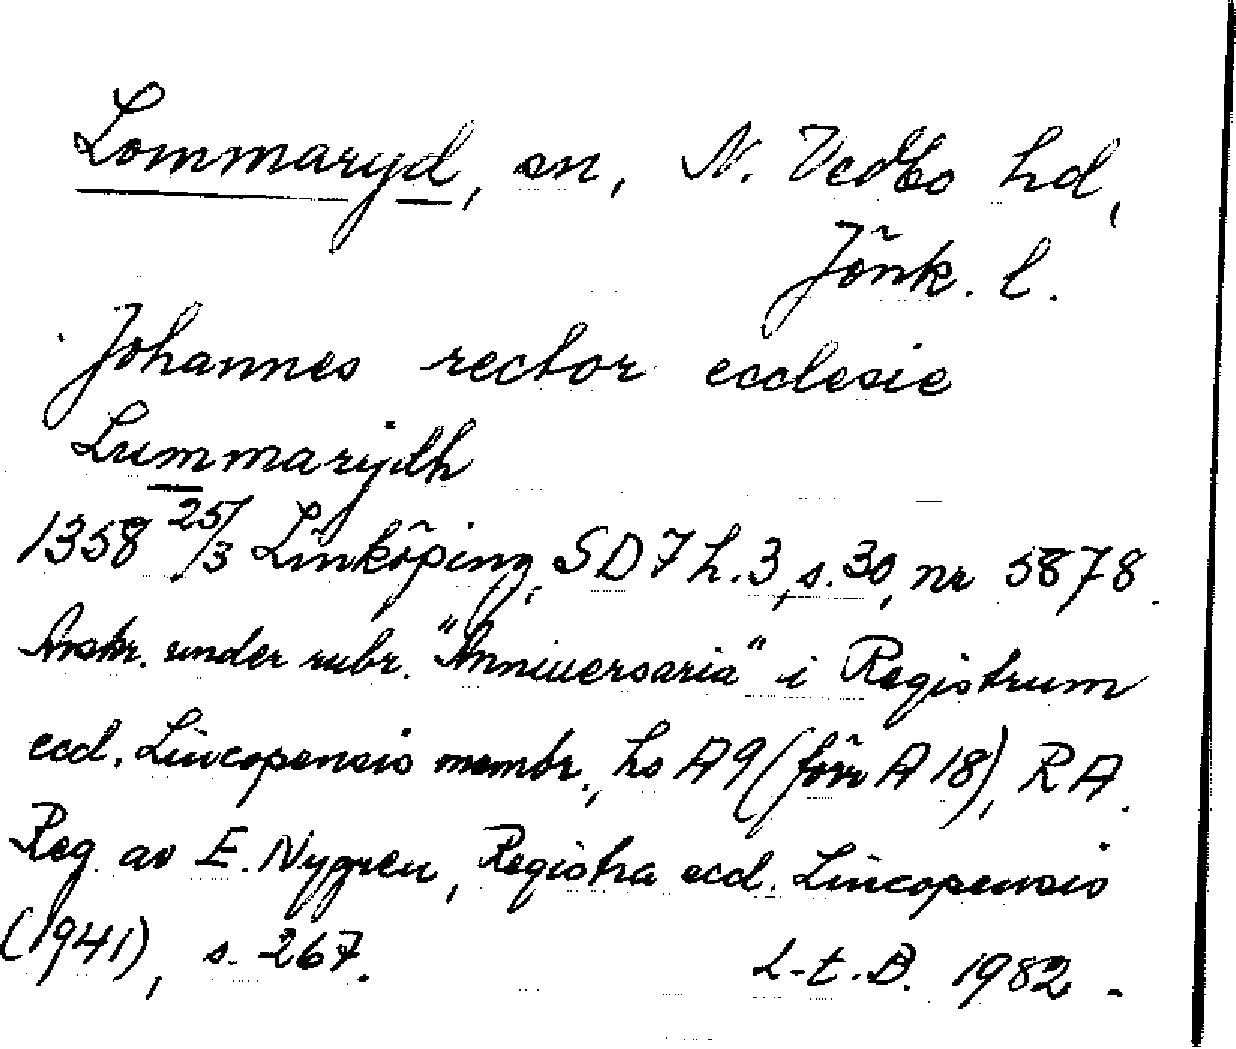 Lommaryd, sn, N. Vedbo hd,
Jönk. l.
Johannes rector ecclesie
Lummarydh
1358 25/3 Linköping, SD 7 h. 3, s. 30, nr 5878.
Avskr. under rubr. "Anniuersaria" i Registrum
eccl. Lincopensis membr., hs A 9 (förr A 18), RA.
Reg. av E. Nygren, Registra eccl. Lincopensis
(1941), s. 267.
L-t. B. 1982.